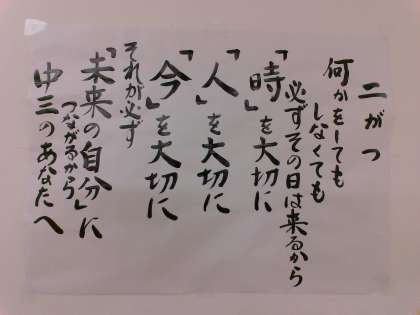 二がつ
何かをしても
しなくても
必ずその日は来るから
「時」を大切に
「人」を大切に
「今」を大切に
それが必ず
「未来の自分」に
つながるから
中三のあなたへ